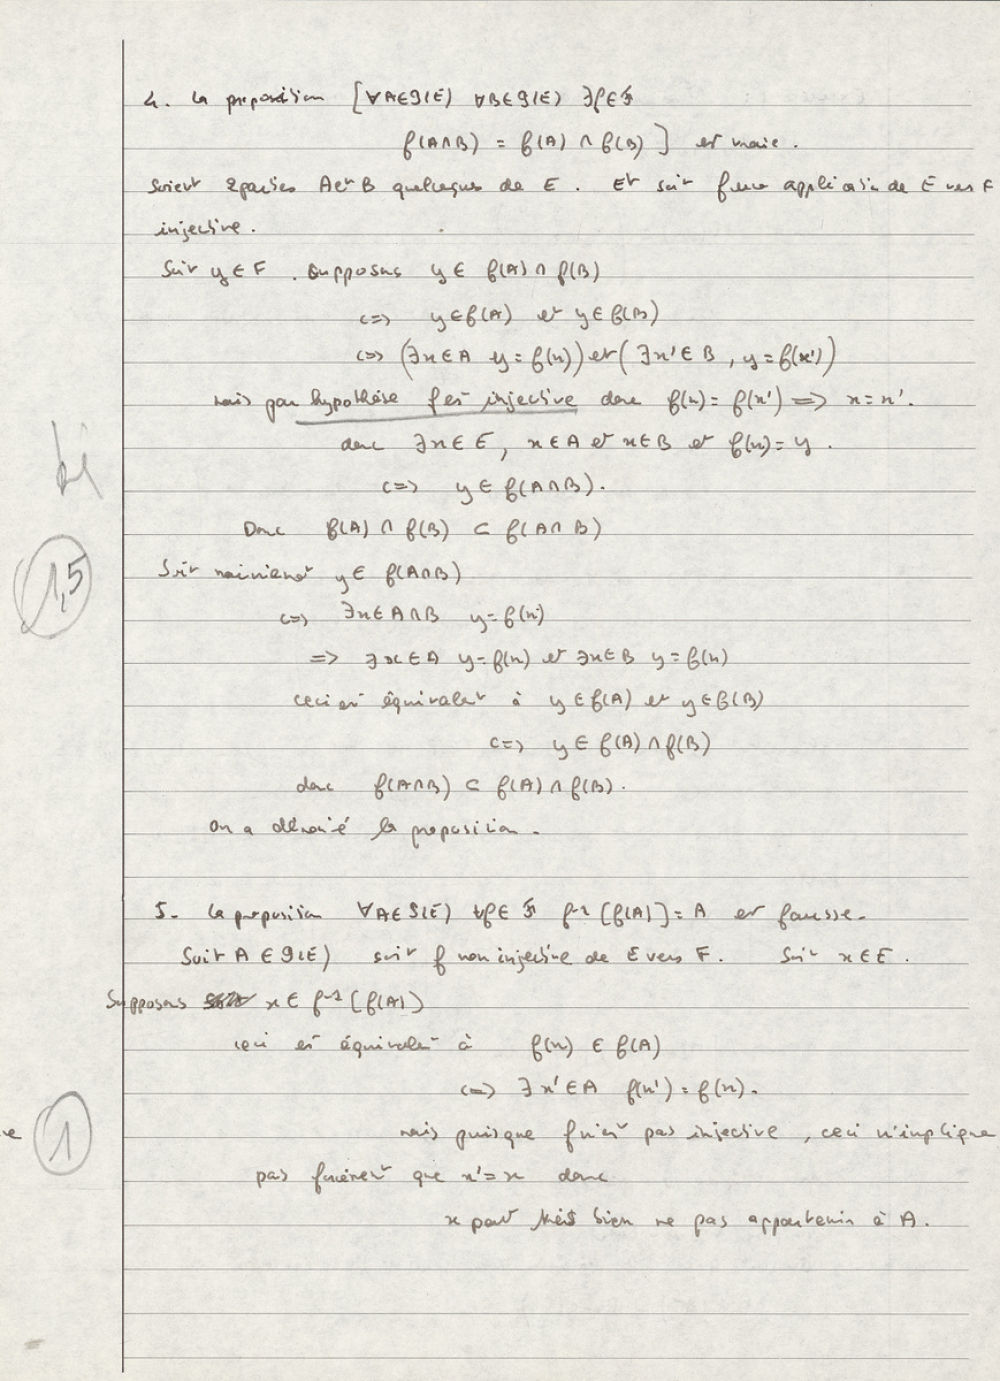 4. La proposition [∀A∈𝒫(E) ∀B∈𝒫(E) ∃f∈ℱ
f(A∩B) = f(A) ∩ f(B) ] est vraie.
Soient 2 parties A et B quelconques de E. Et soit f une application de E vers F
injective.
Soit y∈F. Supposons y∈ f(A) ∩ f(B)
<=> y∈f(A) et y∈f(B)
<=> (∃x∈A y=f(x)) et (∃x'∈B, y=f(x'))
mais par hypothèse f est injective donc f(x)=f(x') => x=x'.
donc ∃x∈E, x∈A et x∈B et f(x)=y.
<=> y∈ f(A∩B).
Donc f(A) ∩ f(B) ⊂ f(A∩B)
1,5
Soit maintenant y∈ f(A∩B)
<=> ∃x∈A∩B y=f(x)
=> ∃x∈A y=f(x) et ∃x∈B y=f(x)
ceci est équivalent à y∈f(A) et y∈f(B)
<=> y∈ f(A)∩f(B)
donc f(A∩B) ⊂ f(A)∩f(B).
On a démontré la proposition.
5. La proposition ∀A∈𝒫(E) ∀f∈ℱ f⁻¹[f(A)]=A est fausse.
Soit A∈𝒫(E) soit f non injective de E vers F. Soit x∈E.
Supposons x∈f⁻¹[f(A)]
ceci est équivalent à f(x) ∈ f(A)
<=> ∃x'∈A f(x')=f(x).
1
mais puisque f n'est pas injective, ceci n'implique
pas forcément que x'=x donc
x peut très bien ne pas appartenir à A.